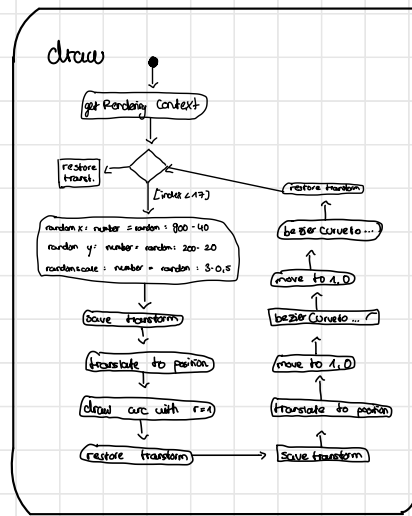 draw
get Rendering Context
restore
transf.
[index < 17]
random x: number = random · 800 - 40
random y: number = random · 200 - 20
randomscale: number = random · 3 - 0,5
save transform
translate to position
draw arc with r=1
restore transform
save transform
translate to position
move to 1,0
bezier curveto ...
move to 1,0
bezier curveto ...
restore transform